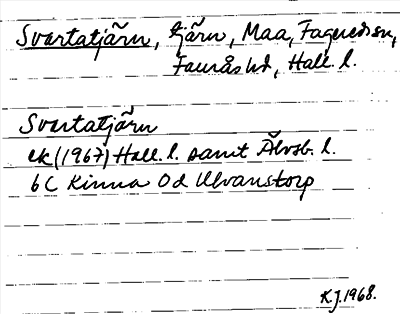 Svartatjärn, tjärn, Maa, Fagered sn,
Faurås hd, Hall. l.
Svartatjärn
ek (1967) Hall. l. samt Älvsb. l.
6C Kinna 0d Ulvanstorp
K.J. 1968.